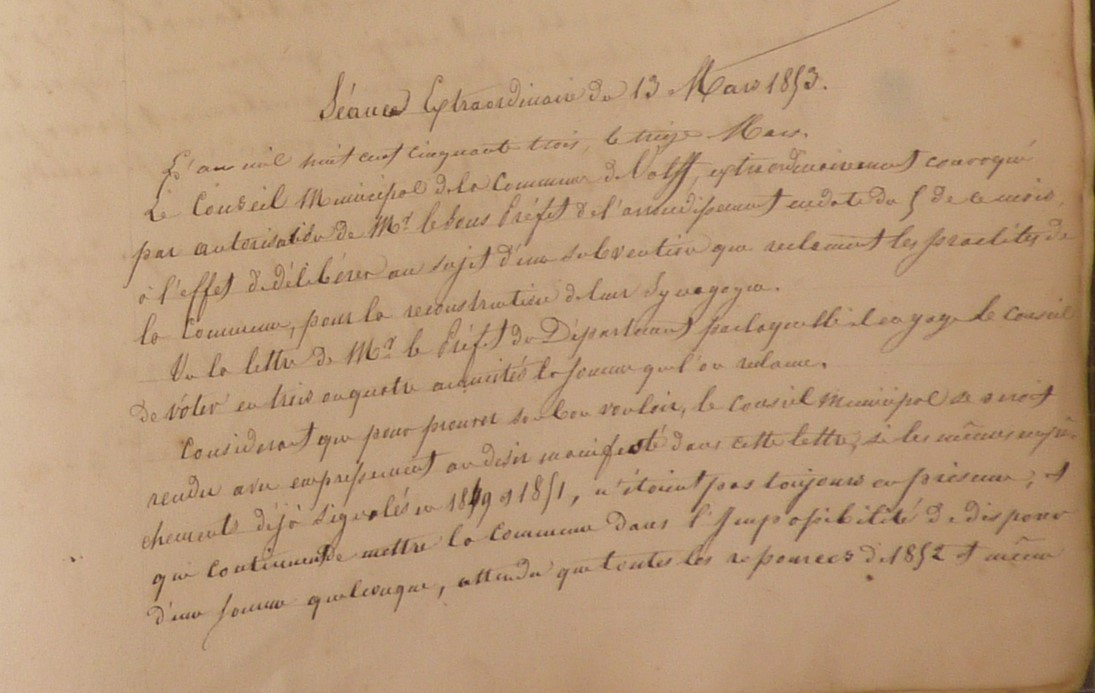 Séance Extraordinaire du 13 Mars 1853.
L'an mil huit cent cinquante trois, le treize Mars.
Le Conseil Municipal de la Commune de Valff, extraordinairement convoqué
par autorisation de Mr le Sous Préfet de l'arrondissement en date du 5 de ce mois,
à l'effet de délibérer au sujet d'une subvention que reclament les Israelites de
la Commune, pour la reconstruction de leur Synagogue.
Vu la lettre de Mr le Préfet du Département par laquelle il engage le Conseil
de voter en trois ou quatre annuités la somme que l'on reclame.
Considerant que pour prouver son bon vouloir, le Conseil Municipal se serait
rendu avec empressement au desir manifesté dans cette lettre, si les mêmes empê-
chements déjà signalés en 1849 et 1851, n'étaient pas toujours en présence, et
qui continuent de mettre la Commune dans l'Impossibilité de disposer
d'une somme quelconque, attendu que toutes les ressources de 1852 et même